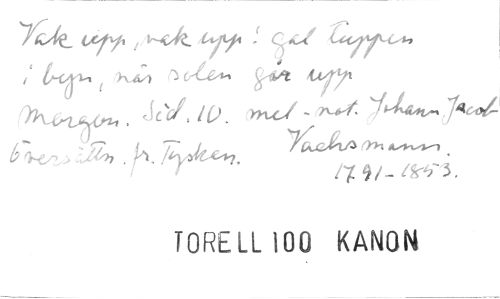 Vak upp, vak upp! gal tuppen
i byn, när solen går upp
Morgon. Sid. 10. mel-not. Johann Jacob
Översättn. fr. Tyskan. Vachsmann.
1791-1853.
TORELL 100 KANON